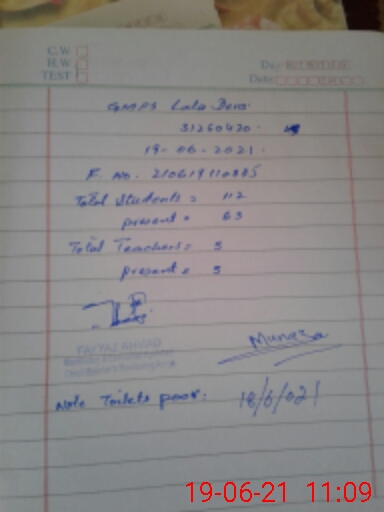 C.W
H.W
TEST
Day:
Date:
GMPS Lala Dera
31260420
19-06-2021
F. No. 210619110885
Total Students = 112
present = 63
Total Teachers = 3
present = 3
FAYYAZ AHMAD
Muneza
Note Toilets poor:
18/6/021
19-06-21 11:09